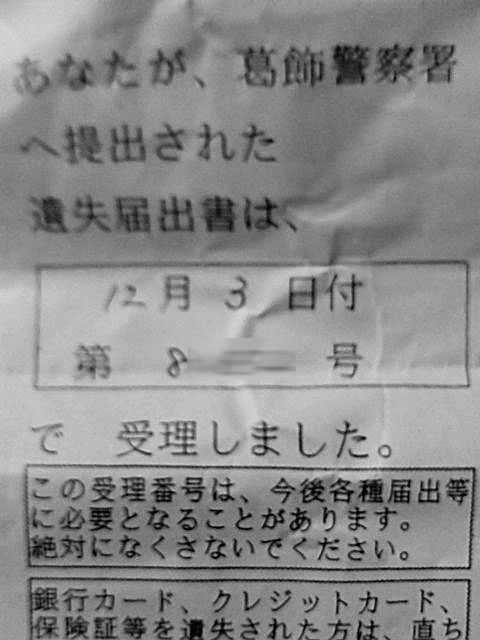 あなたが、葛飾警察署
へ提出された
遺失届出書は、
12月 3 日付
第 8 号
で 受理しました。
この受理番号は、今後各種届出等
に必要となることがあります。
絶対になくさないでください。
銀行カード、クレジットカード、
保険証等を遺失された方は、直ち